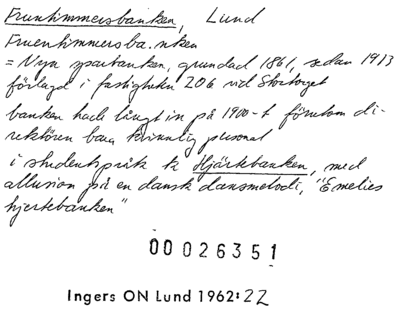 Fruntimmersbanken, Lund
Fruentimmersba.nken
= Nya sparbanken, grundad 1861, sedan 1913
förlagd i fastigheten 206 vid Stortorget
banken hade långt in på 1900-t förutom di-
rektören bara kvinnlig personal
i studentspråk tx Hjärtebanken, med
allusion på en dansk dansmelodi, "Emelies
hjertebanken"
00026351
Ingers ON Lund 1962:22